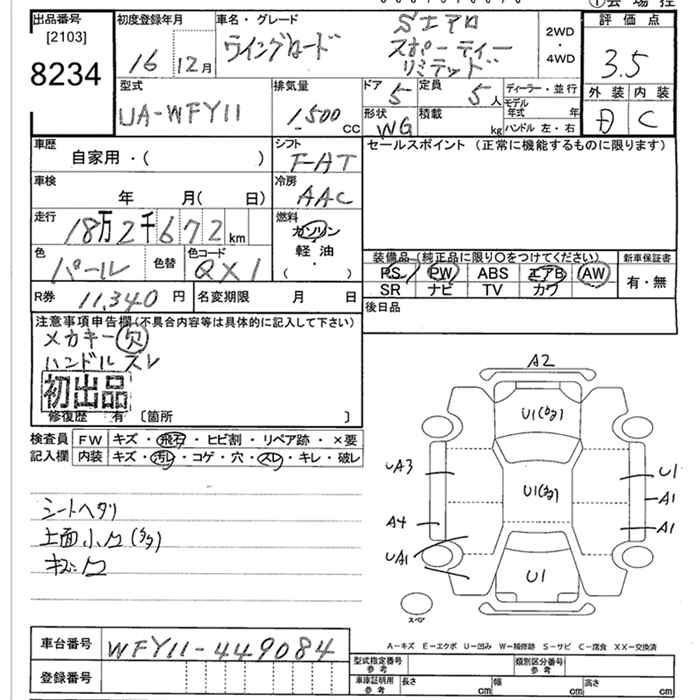 出品番号
[2103]
8234
初度登録年月
16 12月
車名・グレード
ウイングロード
Sエアロ
スポーティー
リミテッド
2WD
・
4WD
評価点
3.5
外装 内装
C
型式
UA-WFY11
排気量
1,500 CC
ドア 5
定員 5人
形状 WG
積載 kg
ディーラー・並行
モデル年式 年
ハンドル 左・右
車歴
自家用・( )
シフト
F-AT
セールスポイント (正常に機能するものに限ります)
車検
年 月( 日)
冷房
AAC
走行
18万2千672km
燃料
ガソリン
軽油
・
( )
色
パール
色替
色コード
QX1
装備品(純正品に限り○をつけてください) 新車保証書
PS PW ABS エアB AW
SR ナビ TV カワ
有・無
R券 11,340円
名変期限 月 日
後日品
注意事項申告欄(不具合内容等は具体的に記入して下さい)
メカキー欠
ハンドルスレ
初出品
修復歴 有 〔箇所 〕
検査員 FW キズ・飛石・ヒビ割・リペア跡・×要
記入欄 内装 キズ・汚レ・コゲ・穴・スレ・キレ・破レ
シートヘタリ
A2
U1
U1
U1
UA3
U1
A1
A4
A1
UA1
スペア
車台番号 WFY11-449084
登録番号
A-キズ E-エクボ U-凹み W-補修跡 S-サビ C-腐食 XX-交換済
型式指定番号 参考
類別区分番号 参考
車庫証明用 参考
長さ cm 幅 cm 高さ cm